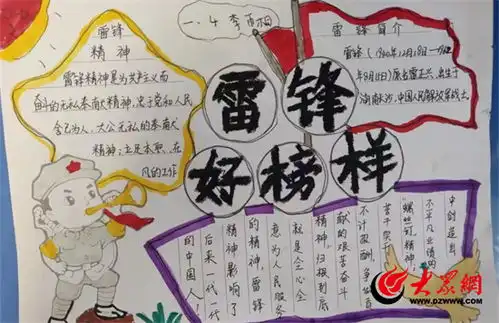 一.4 李雨桐
雷锋
精神
雷锋精神是为共产主义而
奋斗的无私奉献精神，忠于党和人民
舍己为人、大公无私的奉献
精神；立足本职、在
凡的工作
雷锋简介
雷锋（1940年12月18日—1962
年8月15日）原名雷正兴，出生于
湖南长沙，中国人民解放军战士
雷锋
好榜样
中创造出
不平凡业绩的
“螺丝钉精神；
苦干实干
不计报酬，
献的艰苦奋斗
精神，归根到底
就是全心全
意为人民服务
的精神，雷锋
精神影响了
后来一代一代
的中国人！
大众网
www.dzwww.com